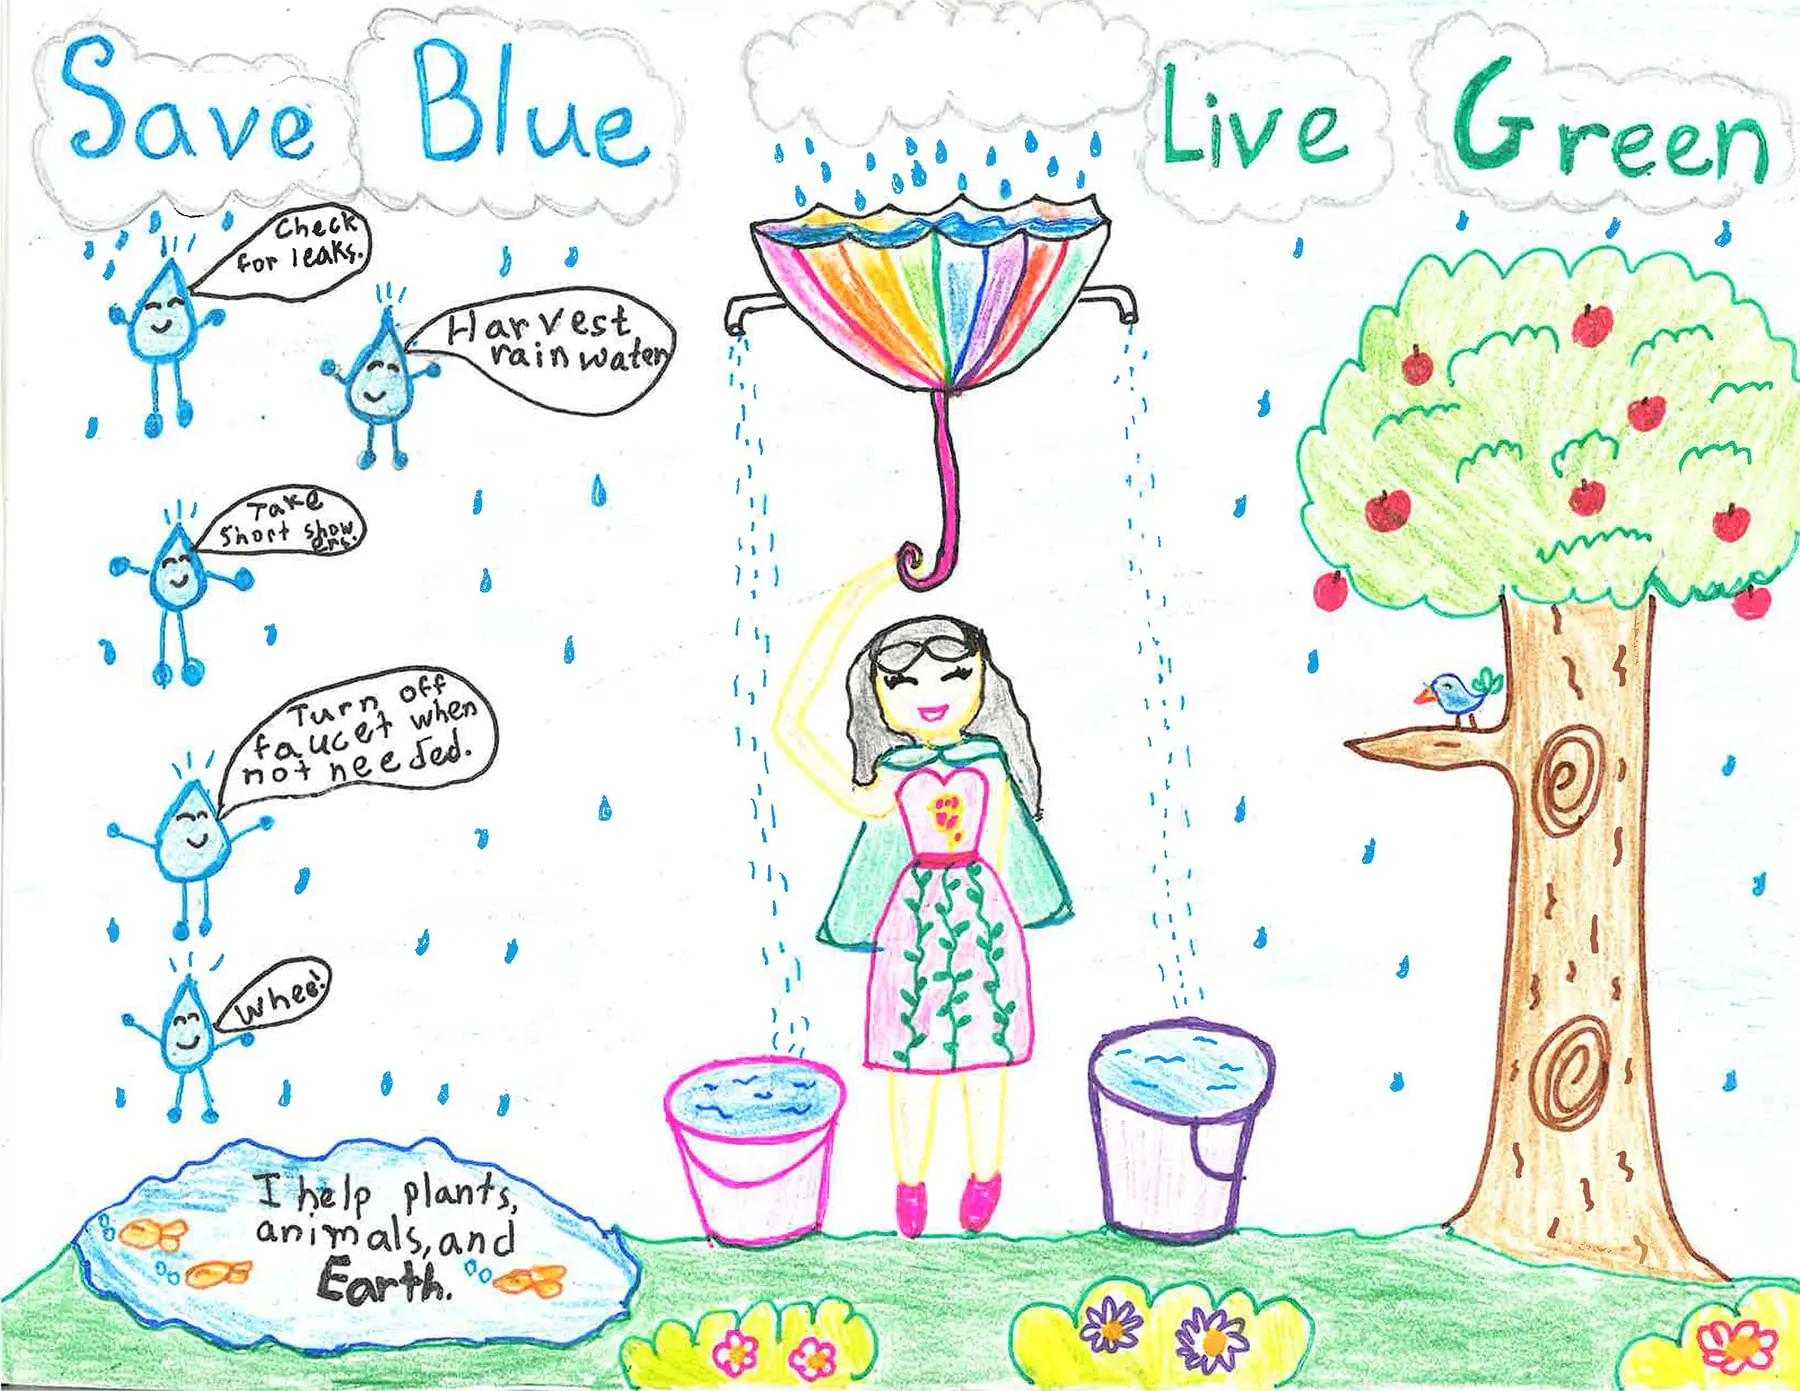 Save Blue Live Green
Check
for leaks.
Harvest
rain water
Take
Short show
ers.
Turn off
faucet when
not needed.
Whee!
I help plants,
animals, and
Earth.